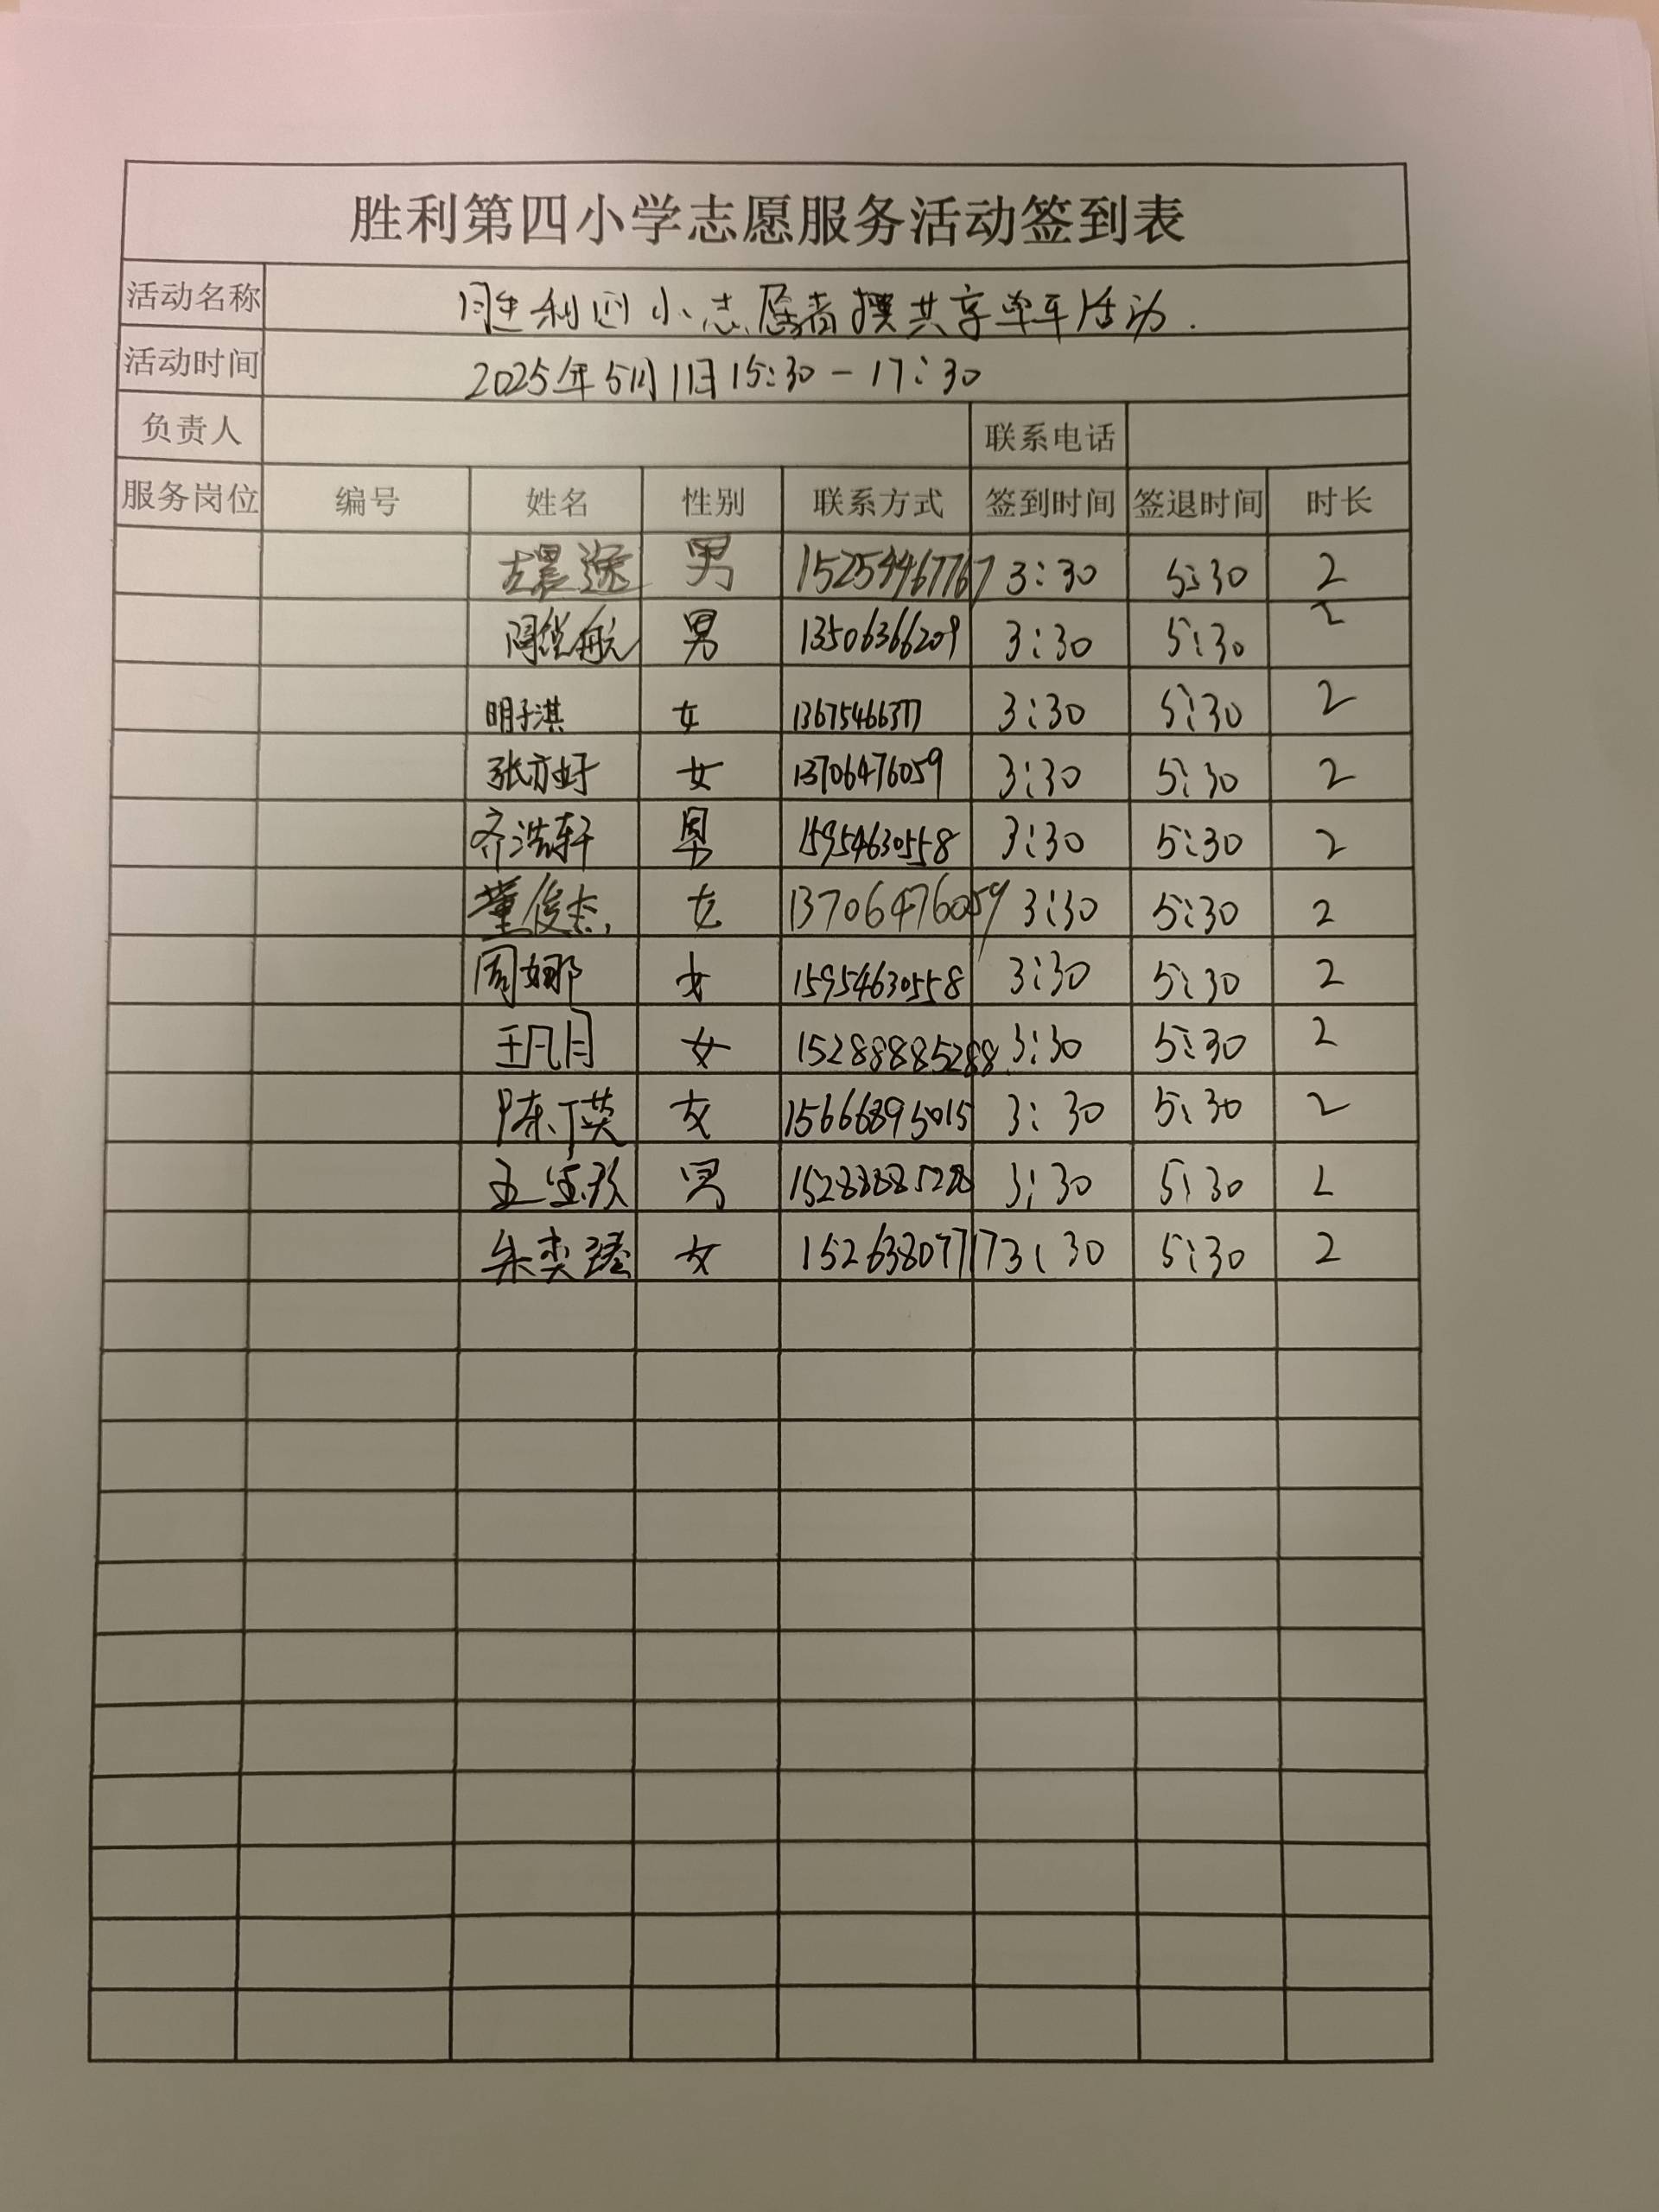 胜利第四小学志愿服务活动签到表
活动名称 胜利四小志愿者摆共享单车活动.
活动时间 2025年5月11日15:30-17:30
负责人 联系电话
服务岗位 编号 姓名 性别 联系方式 签到时间 签退时间 时长
左晨 男 15254467767 3:30 5:30 2
航 男 13506366209 3:30 5:30 2
明子淇 女 3:30 5:30 2
张亦妤 女 13706476059 3:30 5:30 2
齐浩轩 男 15954630558 3:30 5:30 2
董俊杰 女 13706476059 3:30 5:30 2
周娜 女 15954630558 3:30 5:30 2
王凡月 女 15288885288 3:30 5:30 2
陈丁英 女 15666895015 3:30 5:30 2
男 15288885288 3:30 5:30 2
朱奕 女 15263807717 3:30 5:30 2